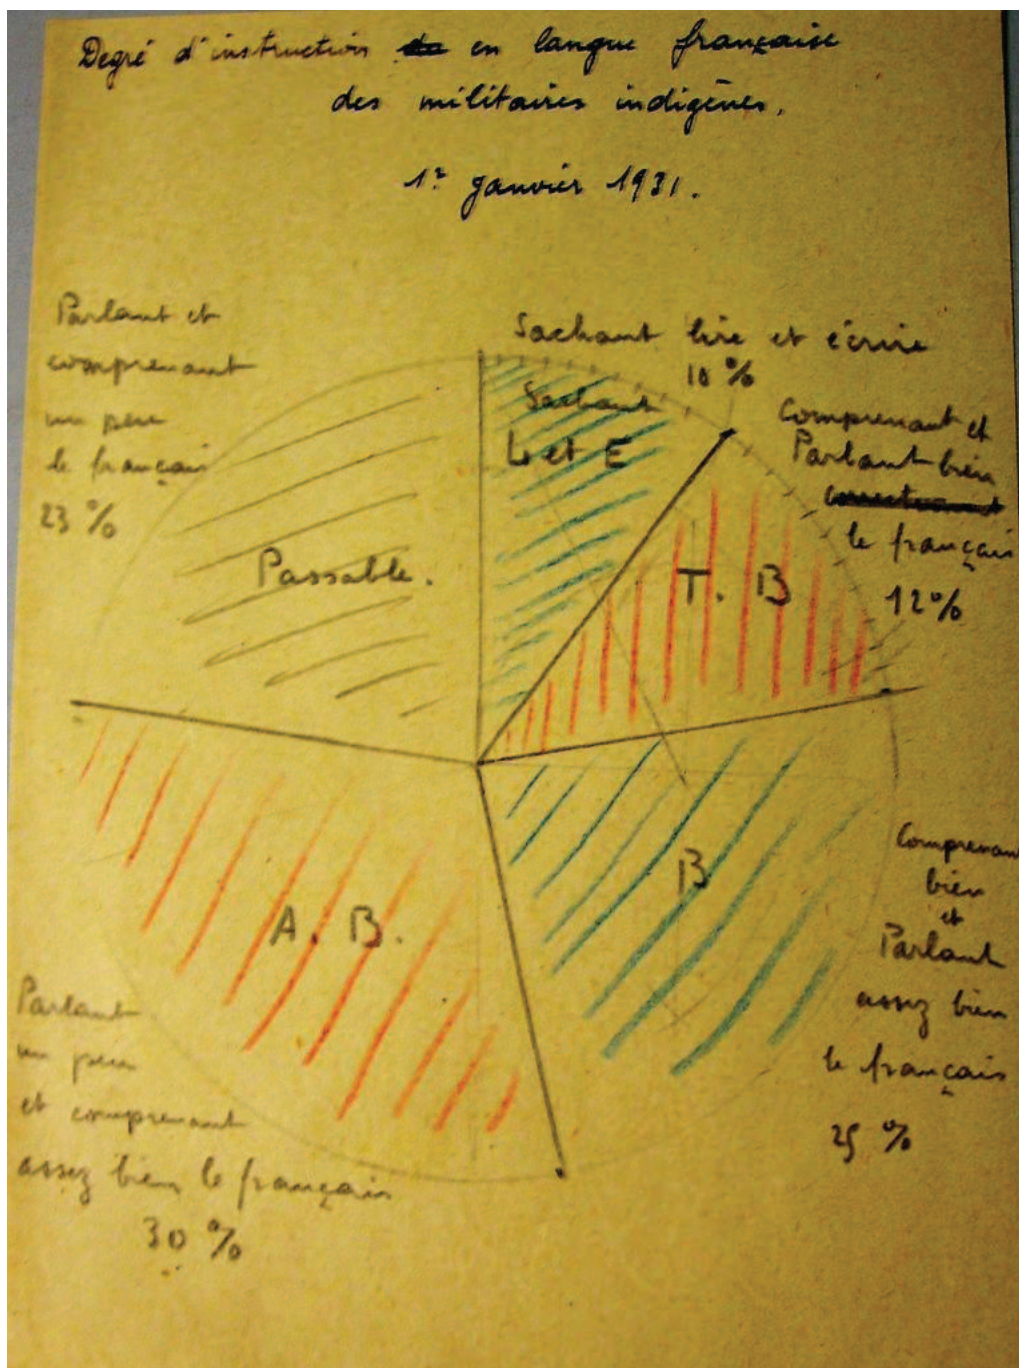 Degré d'instruction en langue française
des militaires indigènes.
1er janvier 1931.
Parlant et
comprenant
un peu
le français
23 %
Passable.
Sachant lire et écrire
10 %
Sachant
L et E
Comprenant et
Parlant bien
le français
12%
T. B
Comprenant
bien
et
Parlant
assez bien
le français
25 %
B
A. B.
Parlant
un peu
et comprenant
assez bien le français
30 %